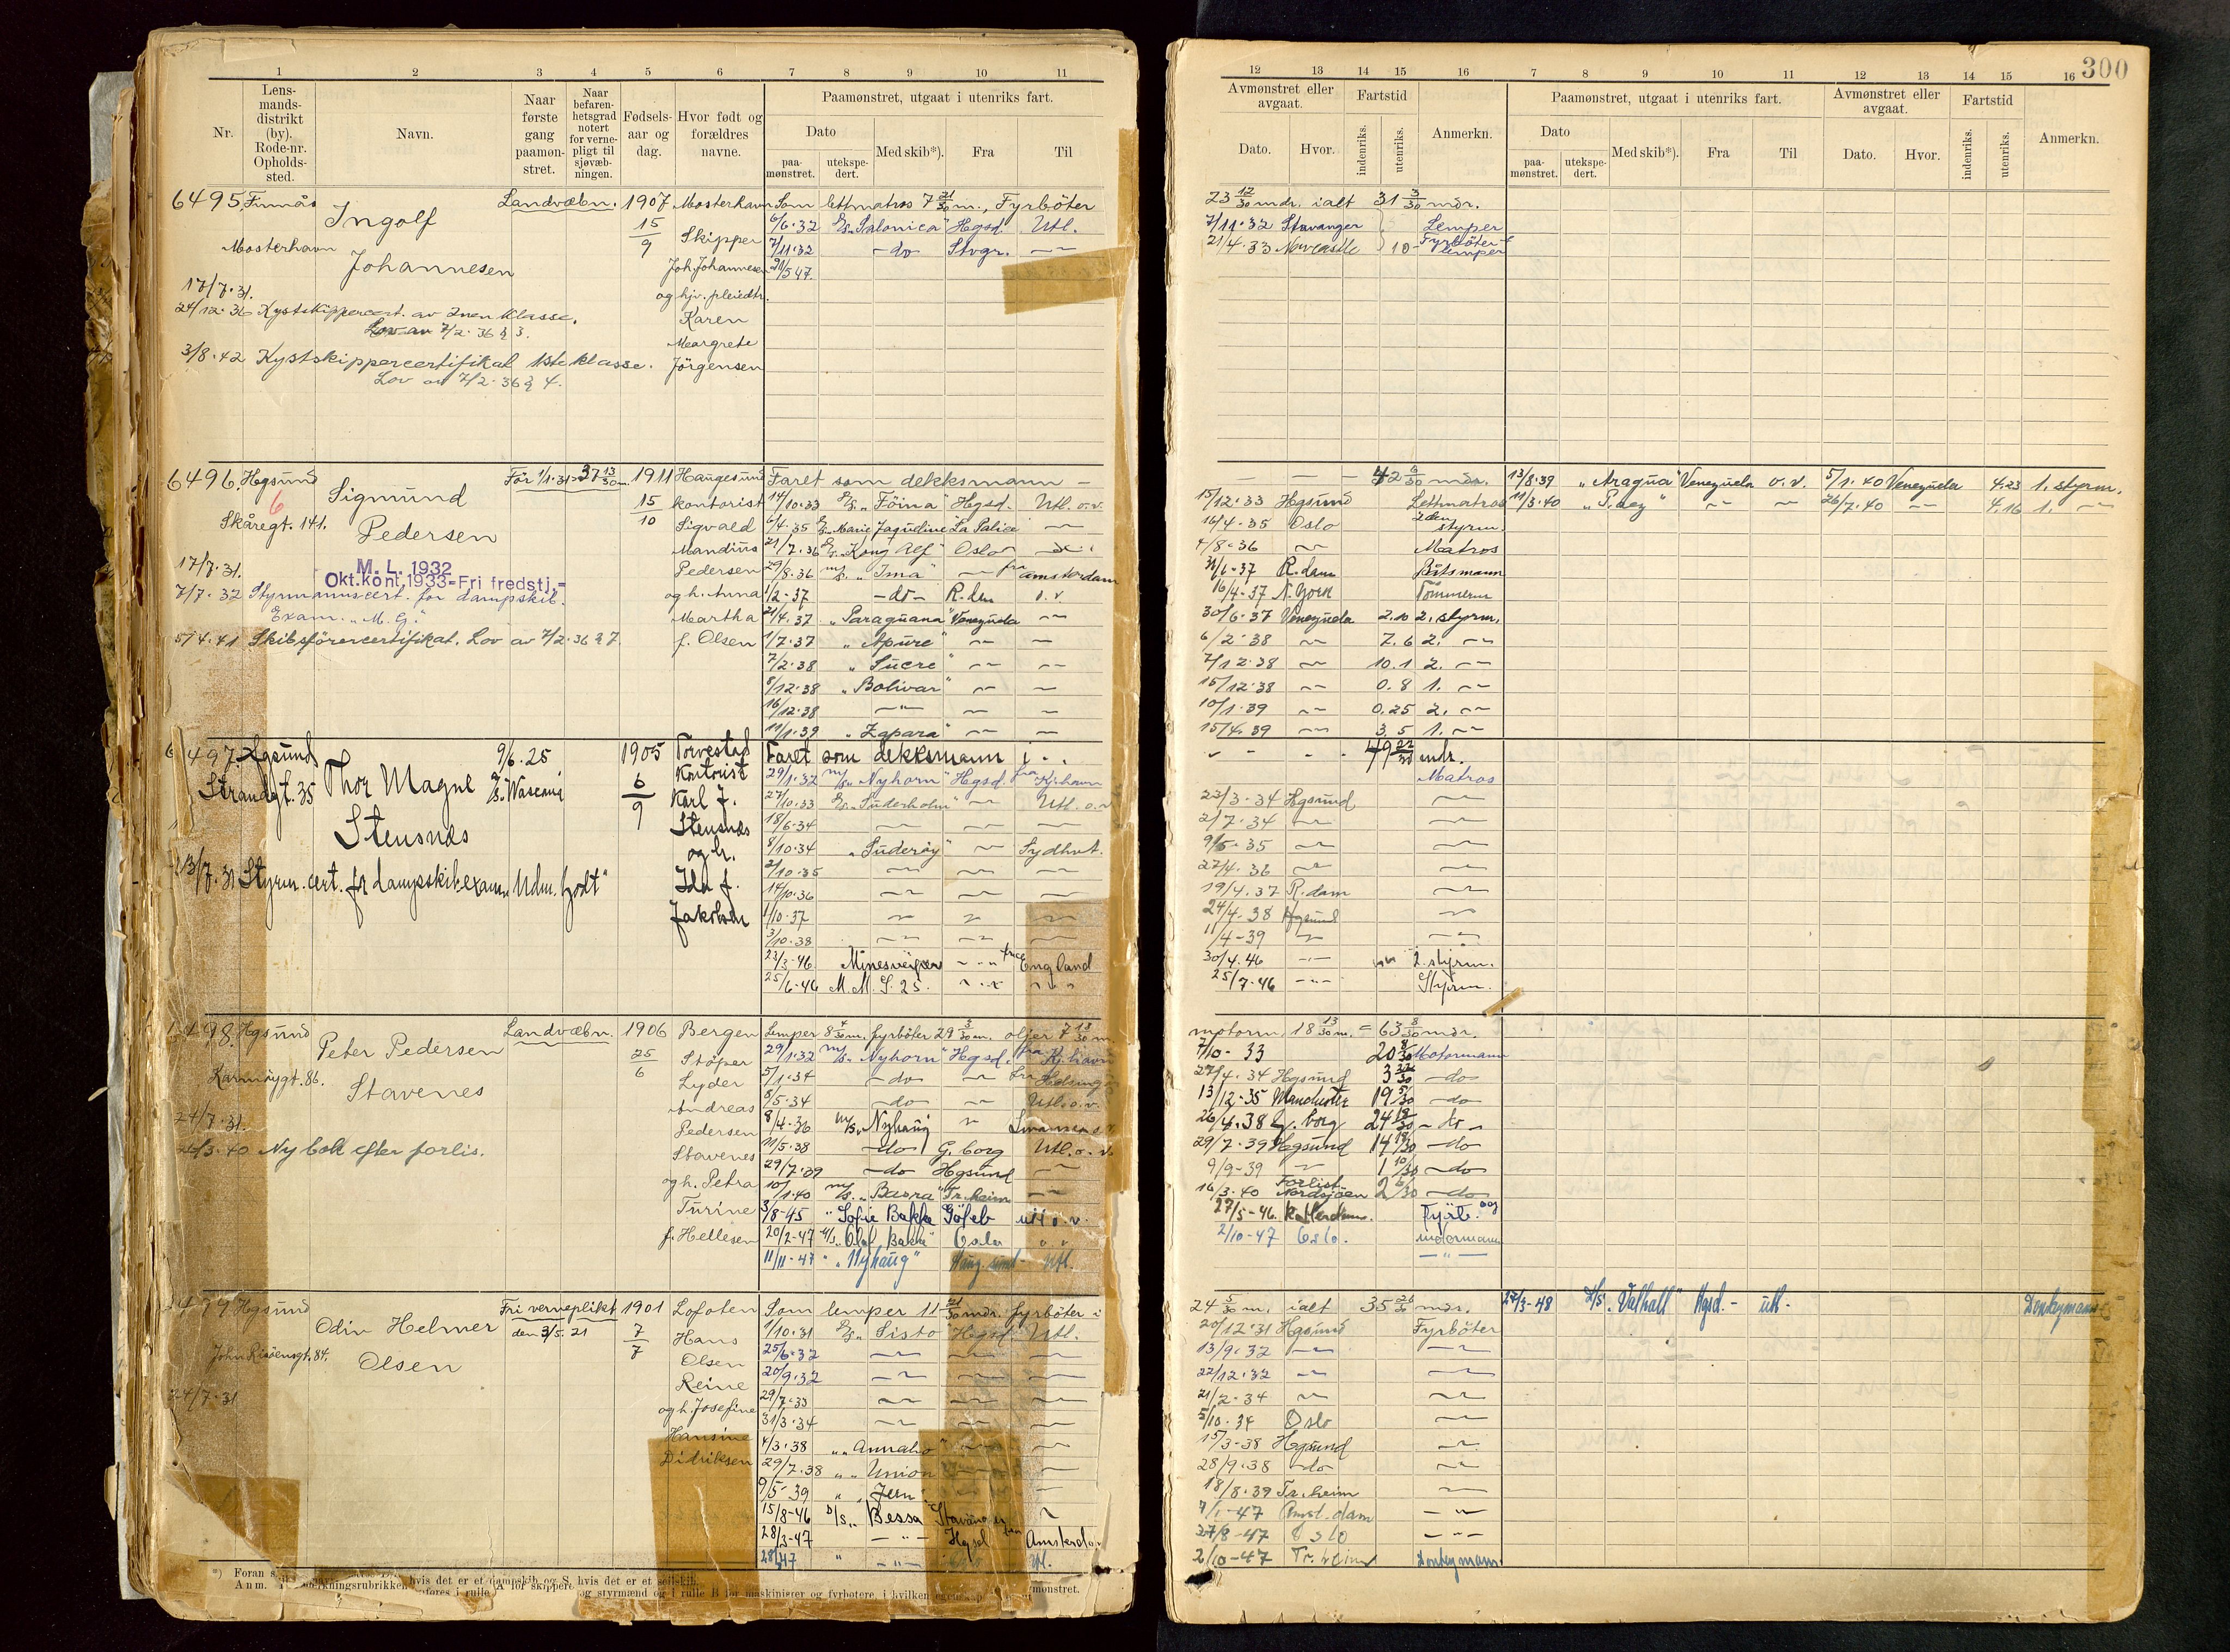 300
1 2 3 4 5 6 7 8 9 10 11
Nr.
Lensmandsdistrikt (by). Rode-nr. Opholdssted.
Navn.
Naar første gang paamønstret.
Naar befarenhetsgrad notert for vernepligt til sjøvæbningen.
Fødselsaar og dag.
Hvor født og forældres navne.
Paamønstret, utgaat i utenriks fart.
Dato
paamønstret.
utekspedert.
Med skib*).
Fra
Til
12 13 14 15 16 7 8 9 10 11 12 13 14 15 16
Avmønstret eller avgaat.
Dato.
Hvor.
Fartstid
indenriks.
utenriks.
Anmerkn.
Paamønstret, utgaat i utenriks fart.
Dato
paamønstret.
utekspedert.
Med skib*).
Fra
Til
Avmønstret eller avgaat.
Dato.
Hvor.
Fartstid
indenriks.
utenriks.
Anmerkn.
6495 Finnås
Ingolf
Johannesen
Mosterhavn
17/7.31.
24/12.36 Kystskippercert. av 2nen klasse.
Lov av 7/2.36 § 3.
3/8.42 Kystskippercertifikat 1ste klasse.
Lov av 7/2.36 § 4.
Landvæbn.
1907
15
9
Mosterhavn
Skipper
Joh. Johannesen
og hj.
Karen
Margrete
Jörgensen
Som lettmatros 7 21/30 m., Fyrböter
6/6.32 "Salonica" Hgsd. Utl.
7/11.32 – do Stvgr.
23 12/30 mdr. ialt 31 3/30 mdr.
7/11.32 Stavanger Lemper
21/4.33 Newcastle 10 – Fyrböter
lemper
6496 Hgsund
6
Skåregt. 141.
Sigmund
Pedersen
17/7.31.
M. L. 1932
Okt.kont. 1933 = Fri fredstj. =
7/7.32 Styrmannscert. for dampskib.
Exam. "M. G."
5/4.41 Skibsförercertifikat. Lov av 7/2.36 § 7.
För 1/1.31 = 37 13/30 m.
1911
15
10
Haugesund
kontorist
Sigvald
Mandius
Pedersen
og h. Anna
Martha
f. Olsen
Faret som dekksmann –
14/10.33 "Föina" Hgsd. Utl. o.v.
6/4.35 "Marie Jaquline" La Palice
21/7.36 "Kong Alf" Oslo
29/8.36 m/s. "Ima" fra Amsterdam
1/2.37 – do – R.dm o.v
21/4.37 "Paraguana" Venezuela
1/7.37 "Apure"
7/2.38 "Sucre"
8/12.38 "Bolivar"
16/12.38
11/1.39 "Zapara"
42 6/30 mdr.
15/12.33 Hgsund Lettmatros
16/4.35 Oslo 2den styrm.
4/8.36 Matros
R.dam Båtsmann
16/4.37 Tömmerm
30/6.37 Venezuela 2.10 2. styrm.
6/2.38 7.6 2.
7/12.38 10.1 2.
15/12.38 0.8 1.
10/1.39 0.25 2.
15/4.39 3.5 1.
13/8.39 "Aragua" Venezuela o.v. 5/1.40 Venezuela 4.23 1. styrm.
11/3.40 26/7.40 4.16 1.
497 Hgsund
Strandgt. 35
Thor Magne
Stensnes
13/7.31 Styrm. cert. for dampskib. exam.
9/6.25
1905
6
9
Torvestad
Kontorist
Karl J.
Stensnes
og h.
Ida f.
Jakobsen
Faret som dekksmann i
29/1.32 m/s. "Nyhorn" Hgsd. fra Kj.havn
27/10.33 "Suderholm" Utl. o.v
18/6-34
8/10.34 "Suderöy" Sydhvt.
2/10.35
14/10.36
1/10.37
3/10.38
23/3-46 Minesveiper fra England
25/6-46 M. M. S. 25.
49 22/30 mdr.
Matros
23/3.34 Hgsund
2/7.34
9/5-35
27/4.36
19/4.37 R.dam
24/4.38 Hgsund
11/4-39
30/4.46 2. styrm.
25/7-46 Styrm.
498 Hgsund
Karmöygt. 86.
Peter Pedersen
Stavenes
24/7.31.
/3.40 Ny bok efter forlis.
Landvæbn.
1906
25
6
Bergen
Stöper
Lyder
Andreas
Pedersen
Stavenes
og h. Petra
Turine
f. Hellesen
Lemper 8 4/30 m. fyrböter 29 3/30 m. oljer 7 18/30 m
29/1.32 m/s. "Nyhorn" Hgsd. fra Kj.havn
5/1.34 – do fra Helsing
8/5.34 – do Utl. o.v.
8/4-36 m/s. Nyhaug
11/5.38 – do G. borg Utl. o. v.
29/7.39 – do Hgsund
10/1.40 m/s. "Basra" Tr.heim
3/8-45 "Sofie Bakke Göteb utl o.v.
20/2-47 "Olaf Bakke" Oslo
11/11-47 "Nyhaug" Haug.sund – Utl.
motorm. 18 13/30 m. = 63 8/30 mdr.
7/10-33 20 8/30 Motormann
27/4.34 Hgsund 3 22/30 – do
13/12.35 Manchester 19 5/30 – do
26/4.38 G. borg 24 18/30 – do –
29/7.39 Hgsund 14 18/30 – do
9/9-39 1 10/30 – do
16/3.40 Forlist Nordsjöen 2 6/30 – do
27/5-46. Rotterdam. Fyrb. og
2/10-47 Oslo. motormann
499 Hgsund
John Risöensgt. 84.
Odin Helmer
Olsen
24/7.31
Fri verneplikt
den 3/5.21
1901
7
7
Lofoten
Hans
Olsen
Reine
og h. Josefine
Hansine
Didriksen
Som lemper 11 21/30 mdr. fyrböter i
1/10.31 "Sisto" Hgsd. Utl.
25/6.32
20/9.32
29/7-33
31/3.34
4/3.38 "Annaho"
29/7.38 " Union
9/5-39 " "Jern"
15/8-46 D/s. "Bessa" Stavanger
28/3-47 Hgsd fra Amsterdam
24 5/30 m. ialt 35 26/30 mdr.
20/12.31 Hgsund Fyrböter
13/9.32
22/12.32
21/2-34
5/10.34 Oslo
15/3-38 Hgsund
28/9.38 – do
18/8.39 Tr.heim
7/1-47 Amst.dam
27/8-47 Oslo
2/10-47 Tr.heim Donkeymann
27/3-48 D/S. "Valhall" Hgsd. – utl. Donkeymann
*) Foran s
hvis det er et dampskib og S. hvis det er et seilskib.
Anm.
rkningsrubrikken
A for skippere og styrmænd og i rulle B for maskinister og fyrbøtere, i hvilken egenskap
mønstret.